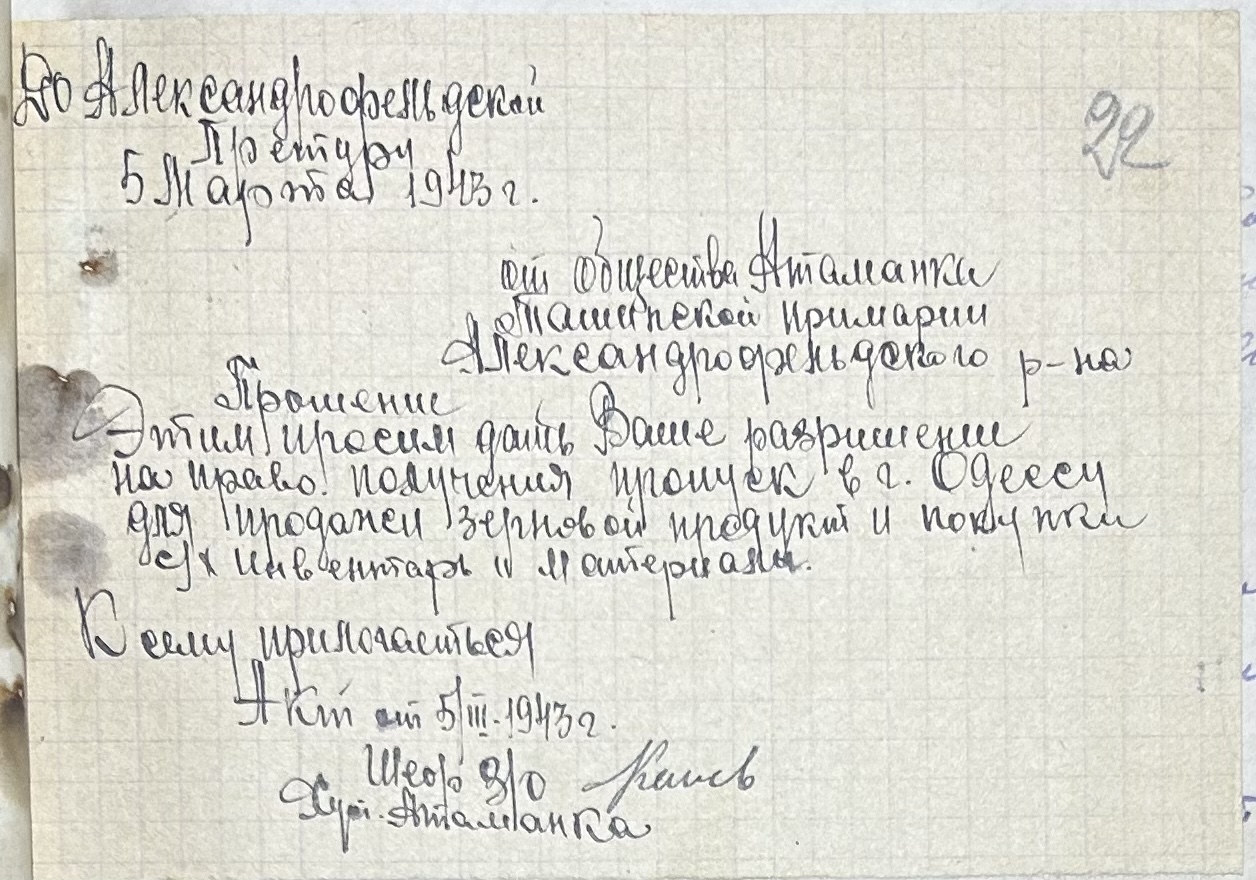 До Александрофельдской
22
Претуру
5 Марта 1943 г.
от Общества Атаманки
Ташинской примарии
Александрофельдского р-на
Прошение
Этим просим дать Ваше разришении
на право получения пропуск в г. Одессу
для продажи зерновой продукт и покупки
с/х инвентарь и материалы.
К сему прилогаеться
Акт от 5/III-1943 г.
Шеф з/о
Хут. Атаманка